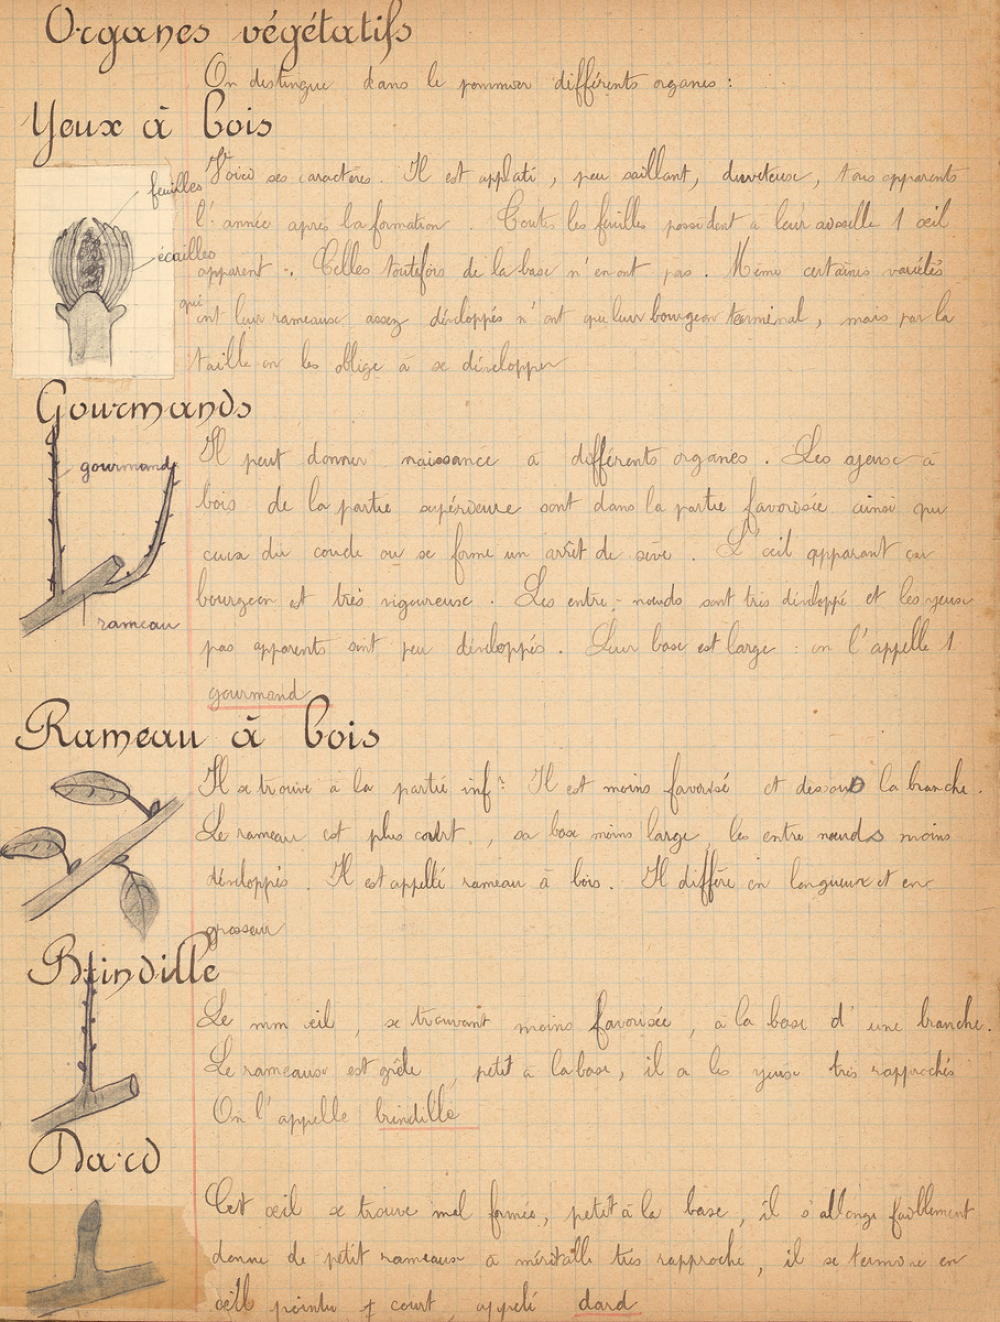 Organes végétatifs
On distingue dans le pommier différents organes :
Yeux à bois
feuilles
écailles
Voici ses caractères. Il est applati, peu saillant, duveteux, tous apparents
l'année après la formation. Toutes les feuilles possèdent à leur aisselle 1 œil
apparent. Celles toutefois de la base n'en ont pas. Même certaines variétés
qui ont leur rameaux assez développés n'ont que leur bourgeon terminal, mais par la
taille on les oblige à se développer
Gourmands
gourmands
rameau
Il peut donner naissance à différents organes. Les yeux à
bois de la partie supérieure sont dans la partie favorisée ainsi que
ceux du coude ou se forme un arrêt de sève. L'œil apparant ou
bourgeon est très vigoureuse. Les entre-nœuds sont très développé et les yeux
pas apparents sont peu développés. Leur base est large : on l'appelle 1
gourmand
Rameau à bois
Il se trouve à la partie inf re Il est moins favorisé et dessous la branche.
Le rameau est plus court, sa base moins large, les entre nœuds moins
développés. Il est appellé rameau à bois. Il diffère en longueur et en
grosseur
Brindille
Le mm œil, se trouvant moins favorisée, à la base d'une branche.
Le rameaux est grêle, petit à la base, il a les yeux très rapprochés
On l'appelle brindille
Dard
Cet œil se trouve mal formée, petit à la base, il s'allonge faiblement
donne de petit rameaux à méritalle très rapproché, il se termine en
œill pointu & court, appelé dard